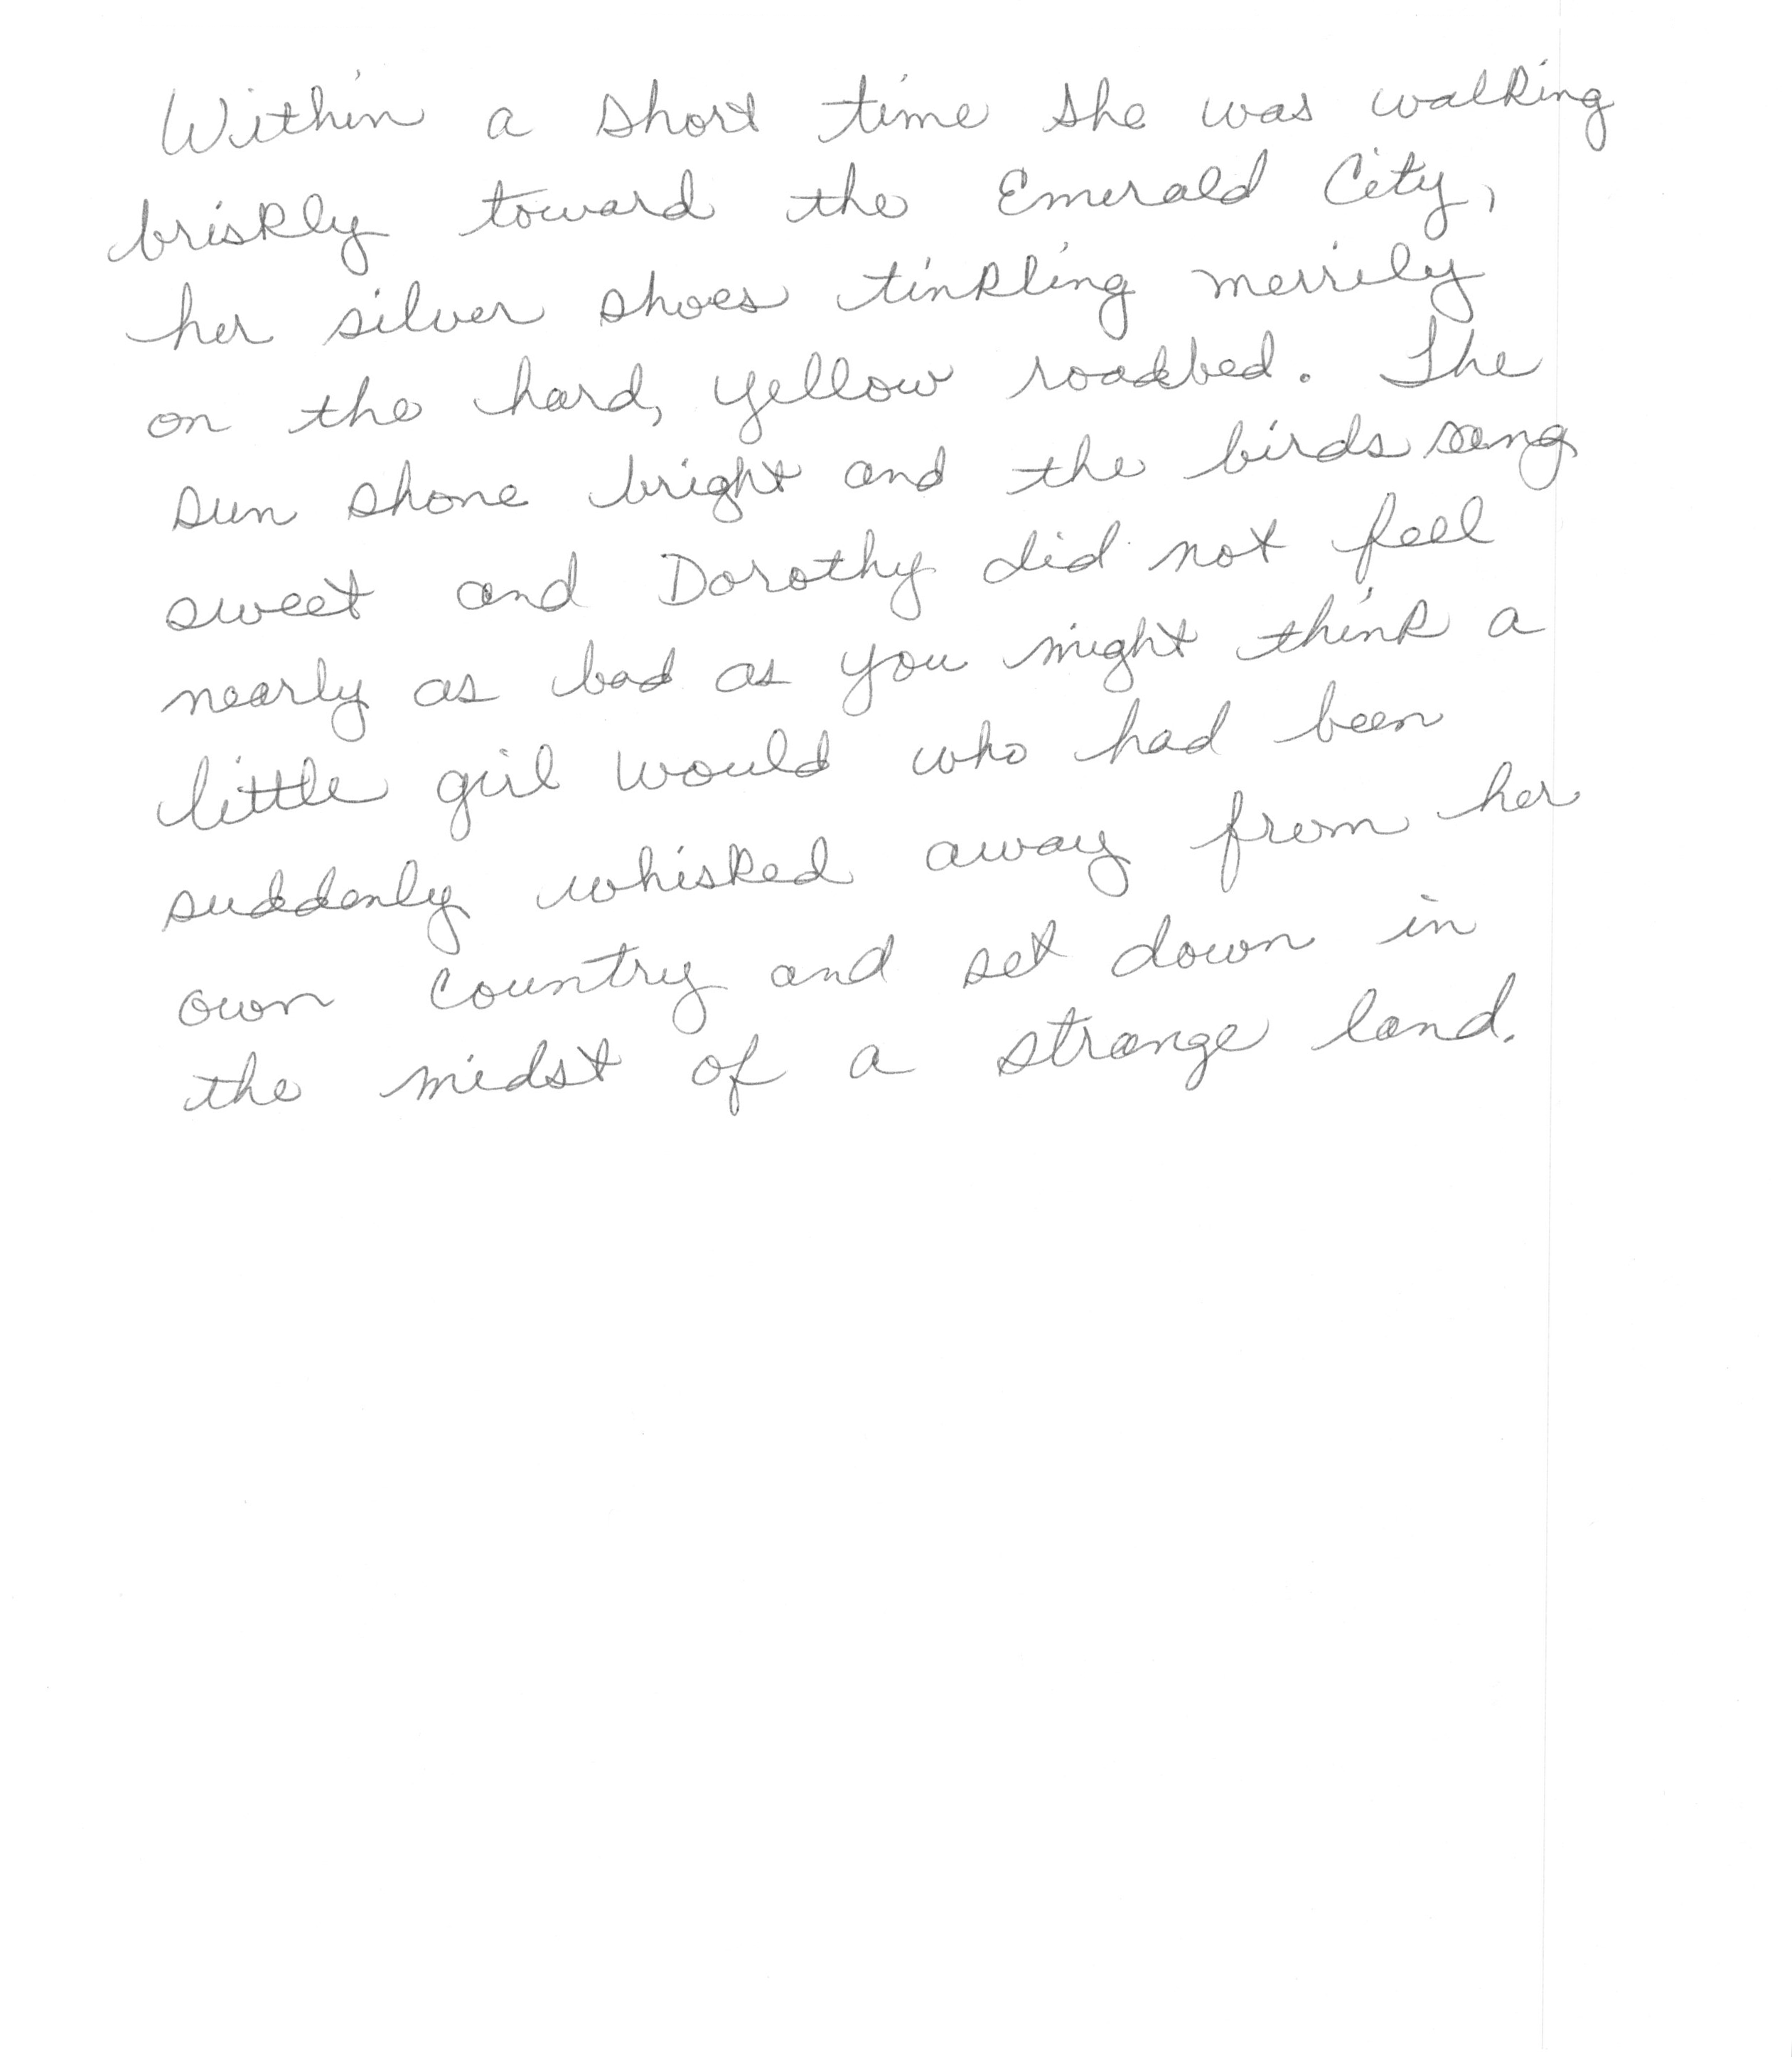 Within a short time she was walking
briskly toward the Emerald City,
her silver shoes tinkling merrily
on the hard, yellow roadbed. The
sun shone bright and the birds sang
sweet and Dorothy did not feel
nearly as bad as you might think a
little girl would who had been
suddenly whisked away from her
own country and set down in
the midst of a strange land.